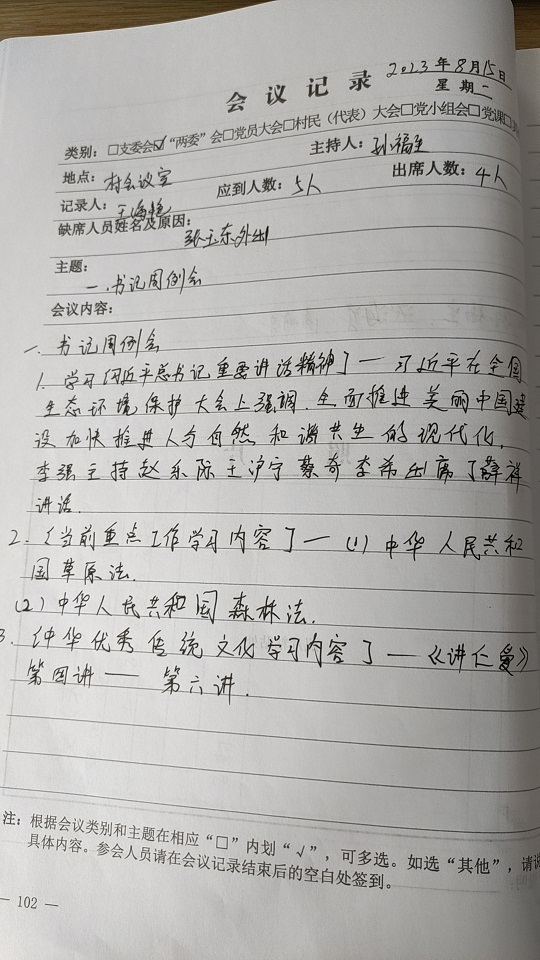 会议记录
2023年8月15日
星期二
类别：□支委会☑“两委”会□党员大会□村民（代表）大会□党小组会□党课□
地点：村会议室 主持人：孙福生
记录人：王海艳 应到人数：5人 出席人数：4人
缺席人员姓名及原因：
张玉东外出
主题：
一、书记周例会
会议内容：
一、书记周例会
1. 学习《习近平总书记重要讲话精神】— 习近平在全国
生态环境保护大会上强调.全面推进美丽中国建
设加快推进人与自然和谐共生的现代化.
李强主持赵乐际王沪宁蔡奇李希出席丁薛祥
讲话.
2.《当前重点工作学习内容】—（1）中华人民共和
国草原法.
（2）中华人民共和国森林法.
3.《中华优秀传统文化学习内容】——《讲仁爱》
第四讲——第六讲.
注：根据会议类别和主题在相应“□”内划“√”，可多选。如选“其他”，请说
具体内容。参会人员请在会议记录结束后的空白处签到。
— 102 —